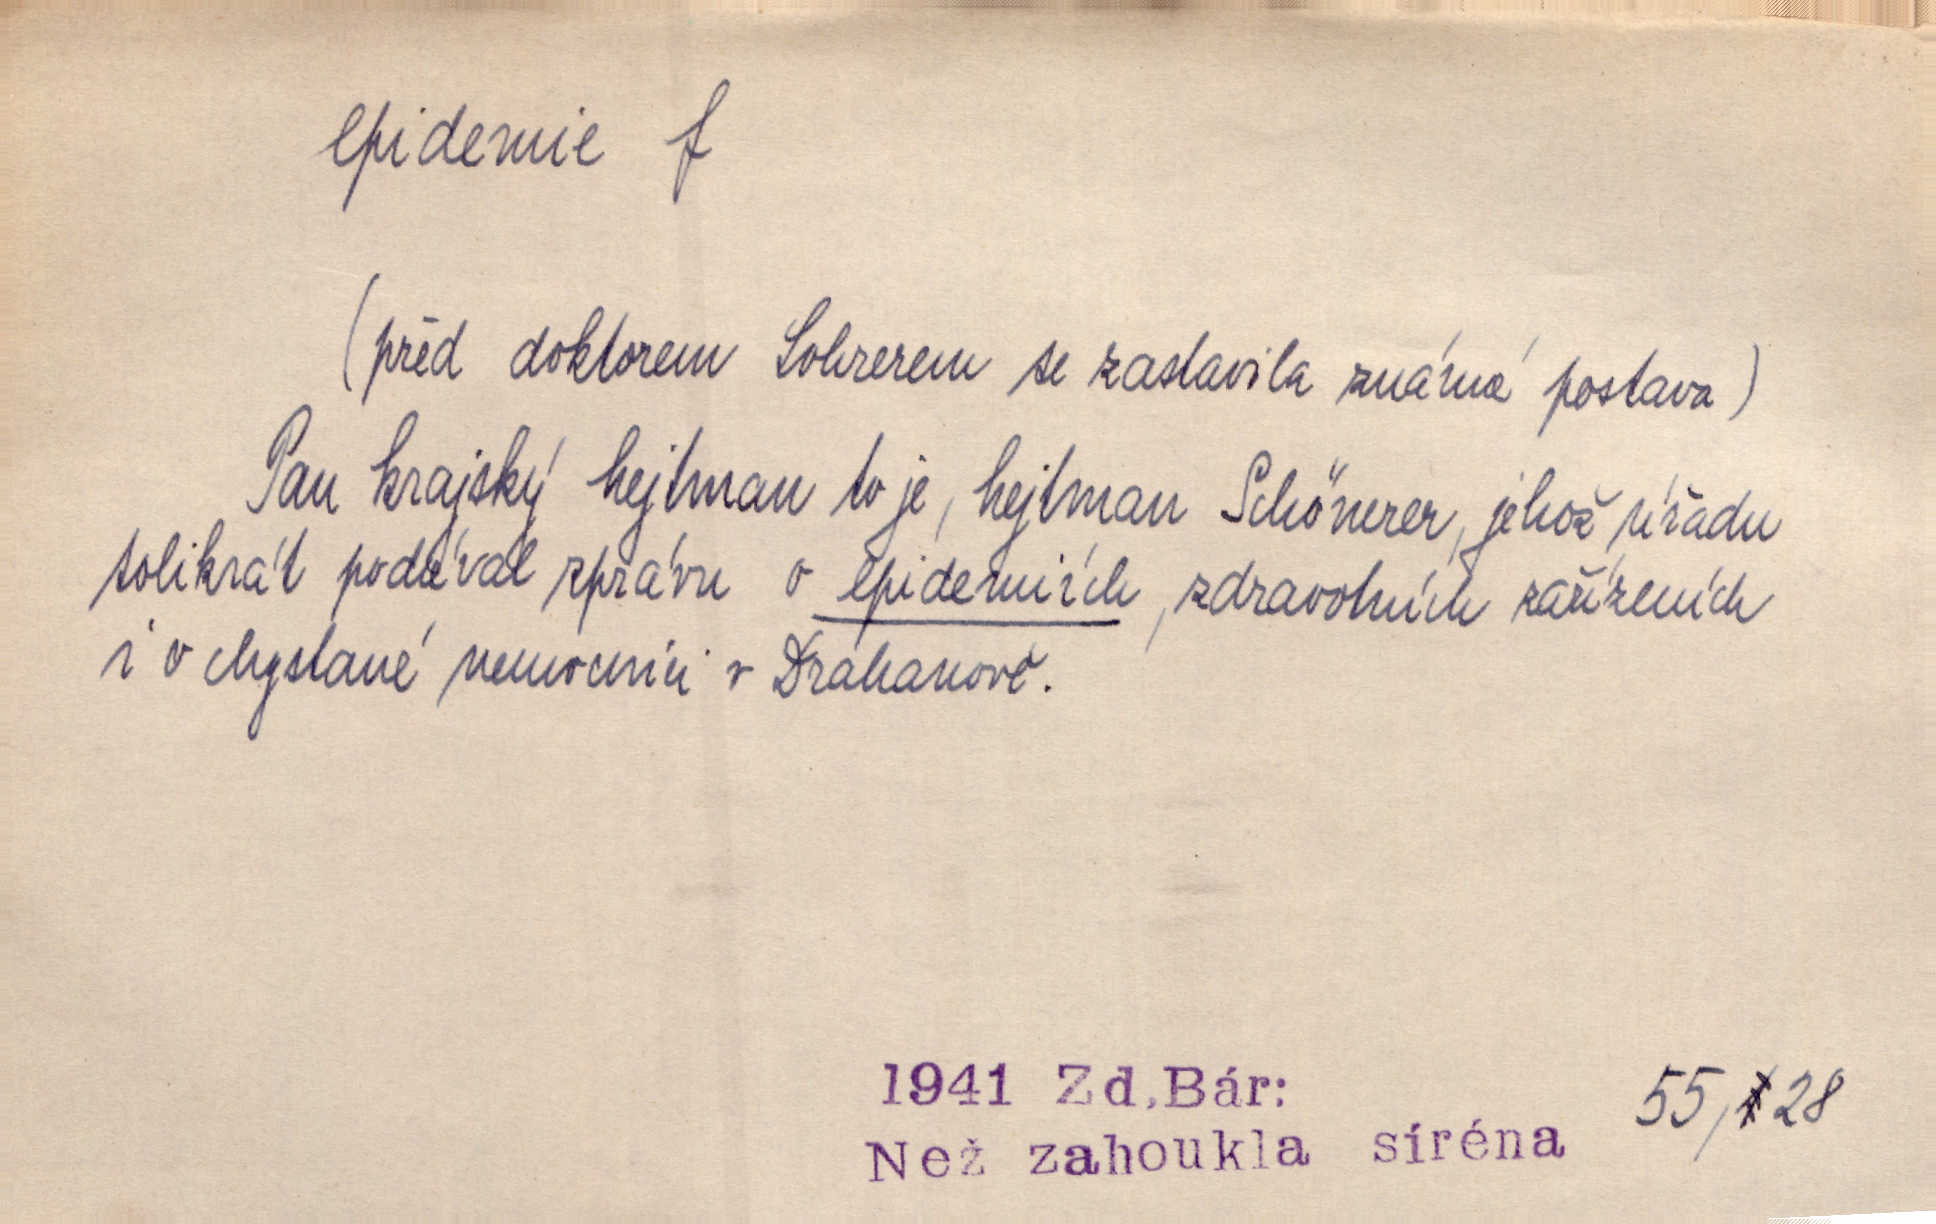 epidemie f
(před doktorem Sohrerem se zastavila známá postava)
Pan krajský hejtman to je, hejtman Schönerer, jehož úřadu
tolikrát podával zprávu o epidemiích, zdravotních zařízeních
i o chystané nemocnici v Drahanově.
1941 Zd.Bár:
Než zahoukla siréna
55, 28